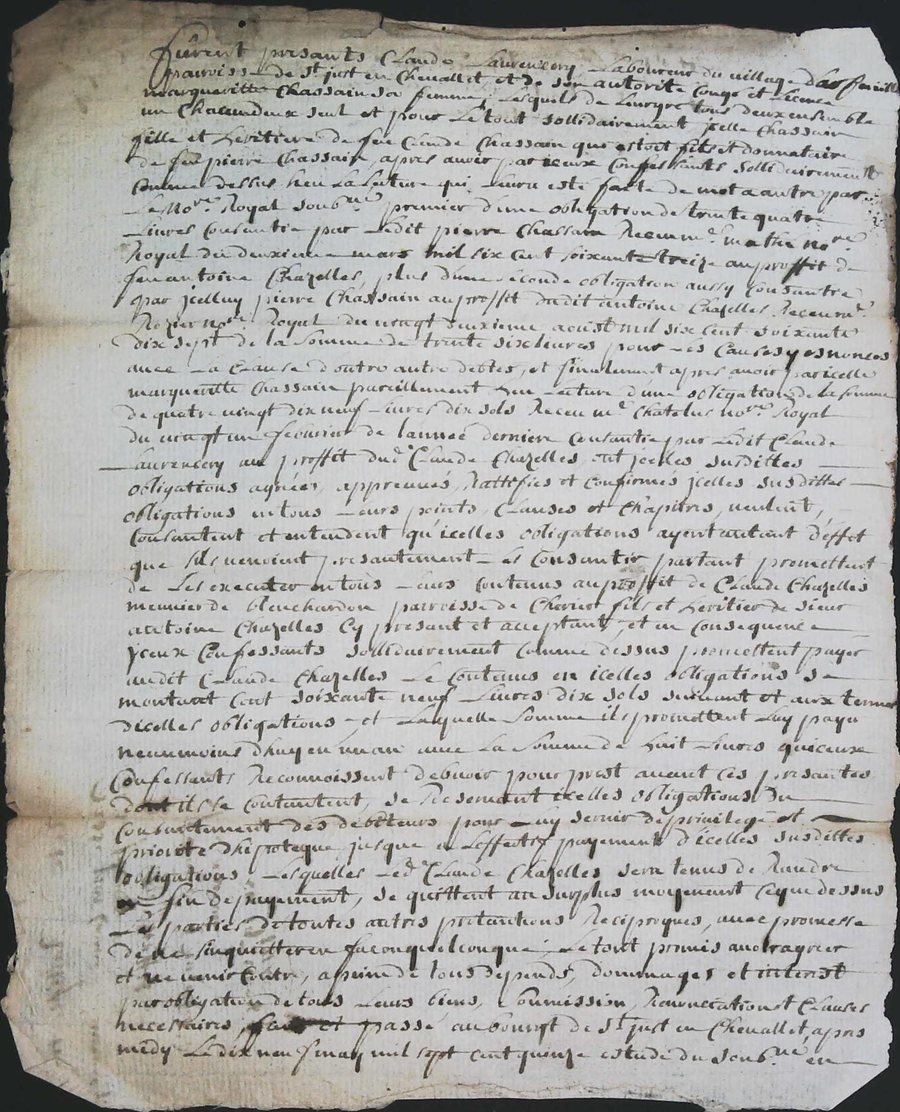 Furent presants Claude Laurencery Laboureur du village
parroisse de St just en Chevallet et de son autorite Conge et Licence
margueritte Chassain sa femme, Lesquels de Leur gre tous deux ensemble
un Chacun deux seul et pour Le tout sollidairement jcelle Chassain
fille et heritiere de feu Claude Chassain que estoit fils et donnataire
de feu pierre Chassain, apres avoir par iceux Confessants sollidairement
Comme dessus heu La Lecture qui Leur a este faite de mot a autre par
Le No.re Royal soub.né premier d'une obligation de trente quatre
Livres Consentie par Ledit pierre Chassain Receu m.e mathe no.re
Royal du deuxieme mars mil six cent soixante treize au proffit de
feu antoine Chazelles, plus d'une seconde obligation aussy Consantie
par jcelluy pierre Chassain au proffit dudit antoine Chazelles Receu m.e
Rozier no.re Royal du vingt deuxieme aoust mil six cent soixante
dix sept de la somme de trente six livres pour Les Causes y esnoncees
avec La Clause d'outre autre debtes, et finalement apres avoir par icelle
margueritte Chassain pareillement heu Lecture d'une obligation de La somme
de quatre vingt dix neuf Livres dix sols Receu m.e Chatelus no.re Royal
du vingt un febvrier de lannee derniere Consantie par Ledit Claude
Laurencery au proffit du d.t Claude Chazelles, ont jcelles susdittes
obligations agrees, apprennes, Rattifies et Confirmes jcelles susdittes
obligations en tous Leurs points, Clauses et Chapitres, veulent,
Consantent et entendent qu'icelles obligations ayent autant d'effet
que sils venoient presantement Les Consantir partant promettent
de Les executer en tous Leurs Contenus au proffit de Claude Chazelles
meunier de blenchardon parroisse de Cherier fils et heritier de sieur
antoine Chazelles Cy presant et acceptant, et en Consequence
yceux Confessants sollidairement Comme dessus promettent payer
audit Claude Chazelles Le Contenus en icelles obligations se
montant Cent soixante neuf Livres dix sols suivant et aux termes
dicelles obligations et Laquelle somme ils promettent Luy payer
neanmoins d'huy en un an avec La somme de huit Livres quiceux
Confessants Reconnoissent debvoir pour prest avant ces presantes
dont ils se Contantent, se Reservant icelles obligations du
Consantement des debiteurs pour Luy servir de privilege et
priorite d'hipoteque jusque a Leffectif payement d'icelles susdittes
obligations Lesquelles Led.t Claude Chazelles sera tenus de Randre
en fin de payement, se quittent au surplus moyenant ce que dessus
Les parties de toutes autres pretantions Reciproques, avec promesse
de ne sinquietter en facon quelconque Le tout promis
et ne venir Contre, a peine de tous depends, dommages et interest
par obligation de tous Leurs biens, soumission, Renonciations et Clauses
necessaires, fait et passé au bourgt de St just en Chevallet apres
midy Le dix neuf may mil sept cent quinze estude du soub.né en